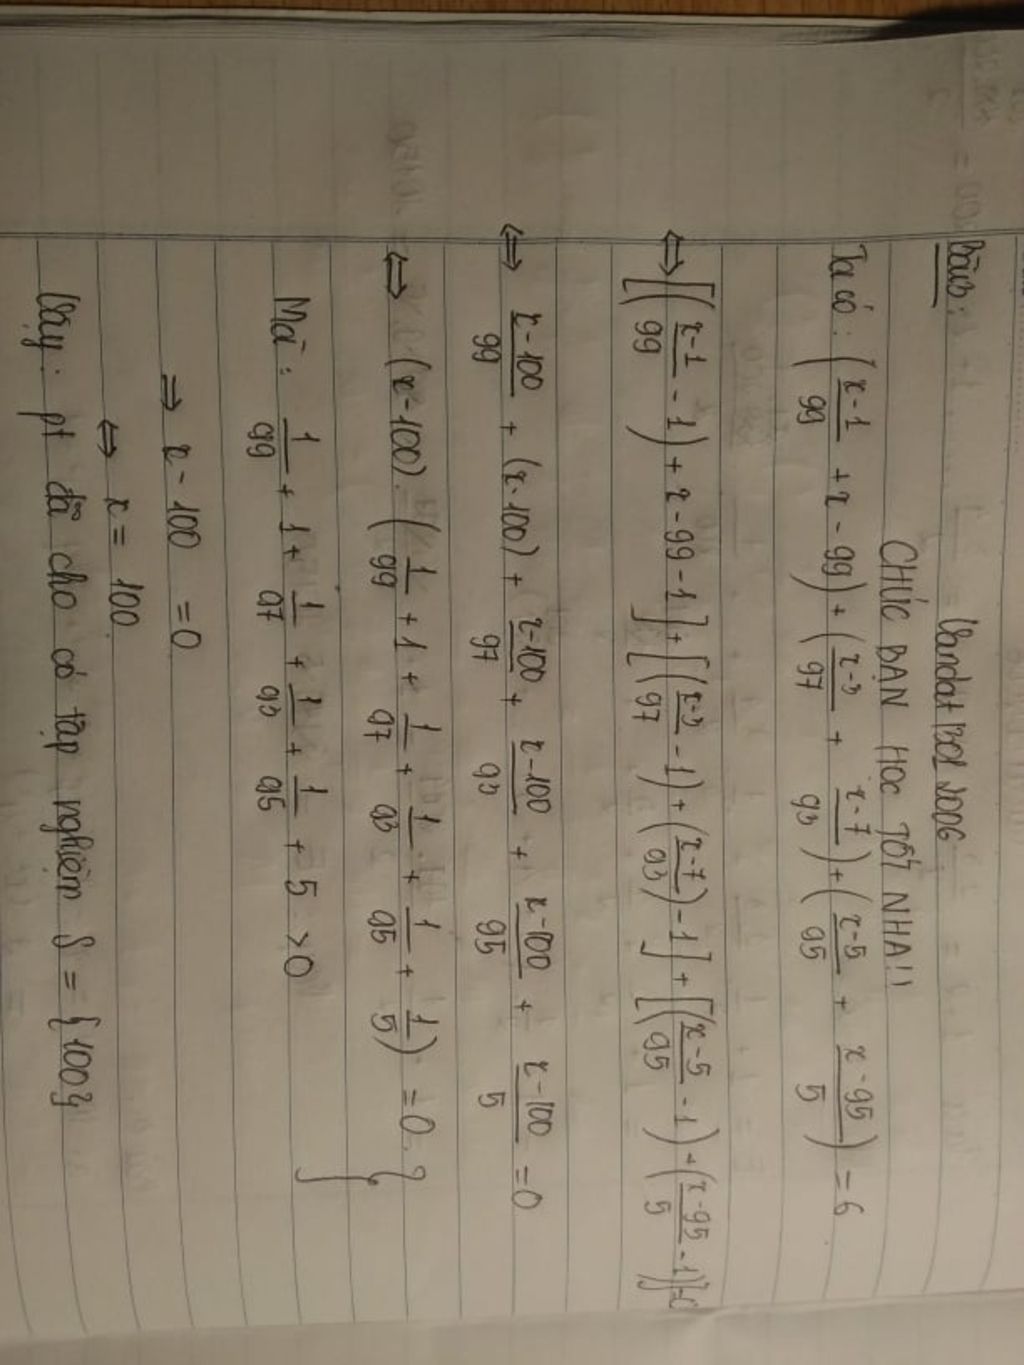 Vandat 1302 2006
CHÚC BẠN HỌC TỐT NHA!!
Bài3:
Ta có: (x-1/99 + x - 99) + (x-3/97 + x-7/93) + (x-5/95 + x-95/5) = 6
⇔ [(x-1/99 - 1) + x - 99 - 1] + [(x-3/97 - 1) + (x-7/93) - 1] + [(x-5/95 - 1) + (x-95/5 - 1)] =
⇔ x-100/99 + (x-100) + x-100/97 + x-100/93 + x-100/95 + x-100/5 = 0
⇔ (x-100). (1/99 + 1 + 1/97 + 1/93 + 1/95 + 1/5) = 0
Mà: 1/99 + 1 + 1/97 + 1/93 + 1/95 + 5 > 0
⇒ x - 100 = 0
⇔ x = 100
Vậy: pt đã cho có tập nghiệm S = {100}